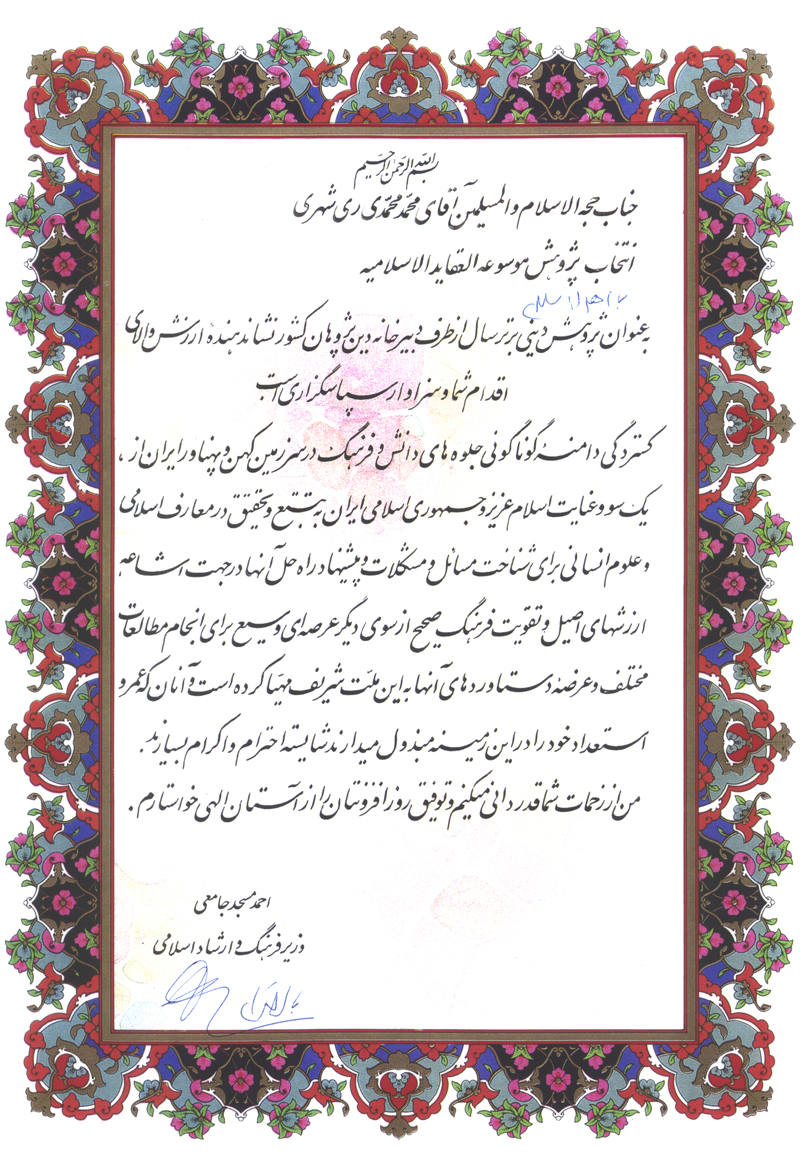 بسم الله الرحمن الرحیم
جناب حجه الاسلام والمسلمین آقای محمّد محمّدی ری شهری
انتخاب پژوهش موسوعه العقاید الاسلامیه
با اهداء سلام
به عنوان پژوهش دینی برتر سال از طرف دبیرخانه دین پژوهان کشور نشاندهنده ارزش والای
اقدام شما و سزاوار سپاسگزاری است
گستردگی دامنهٔ گوناگونی جلوه های دانش و فرهنگ در سرزمین کهن و پهناور ایران از ،
یک سو و عنایت اسلام عزیز و جمهوری اسلامی ایران به تتبع و تحقیق در معارف اسلامی
و علوم انسانی برای شناخت مسائل و مشکلات و پیشنهاد راه حل آنها در جهت اشاعه
ارزشهای اصیل و تقویت فرهنگ صحیح از سوی دیگر عرصه ای وسیع برای انجام مطالعات
مختلف و عرضهٔ دستاوردهای آنها به این ملّت شریف مهیّا کرده است و آنان که عمر و
استعداد خود را در این زمینه مبذول میدارند شایسته احترام و اکرام بسیارند.
من از زحمات شما قدردانی میکنم و توفیق روزافزونتان را از آستان الهی خواستارم .
احمد مسجدجامعی
وزیر فرهنگ و ارشاد اسلامی